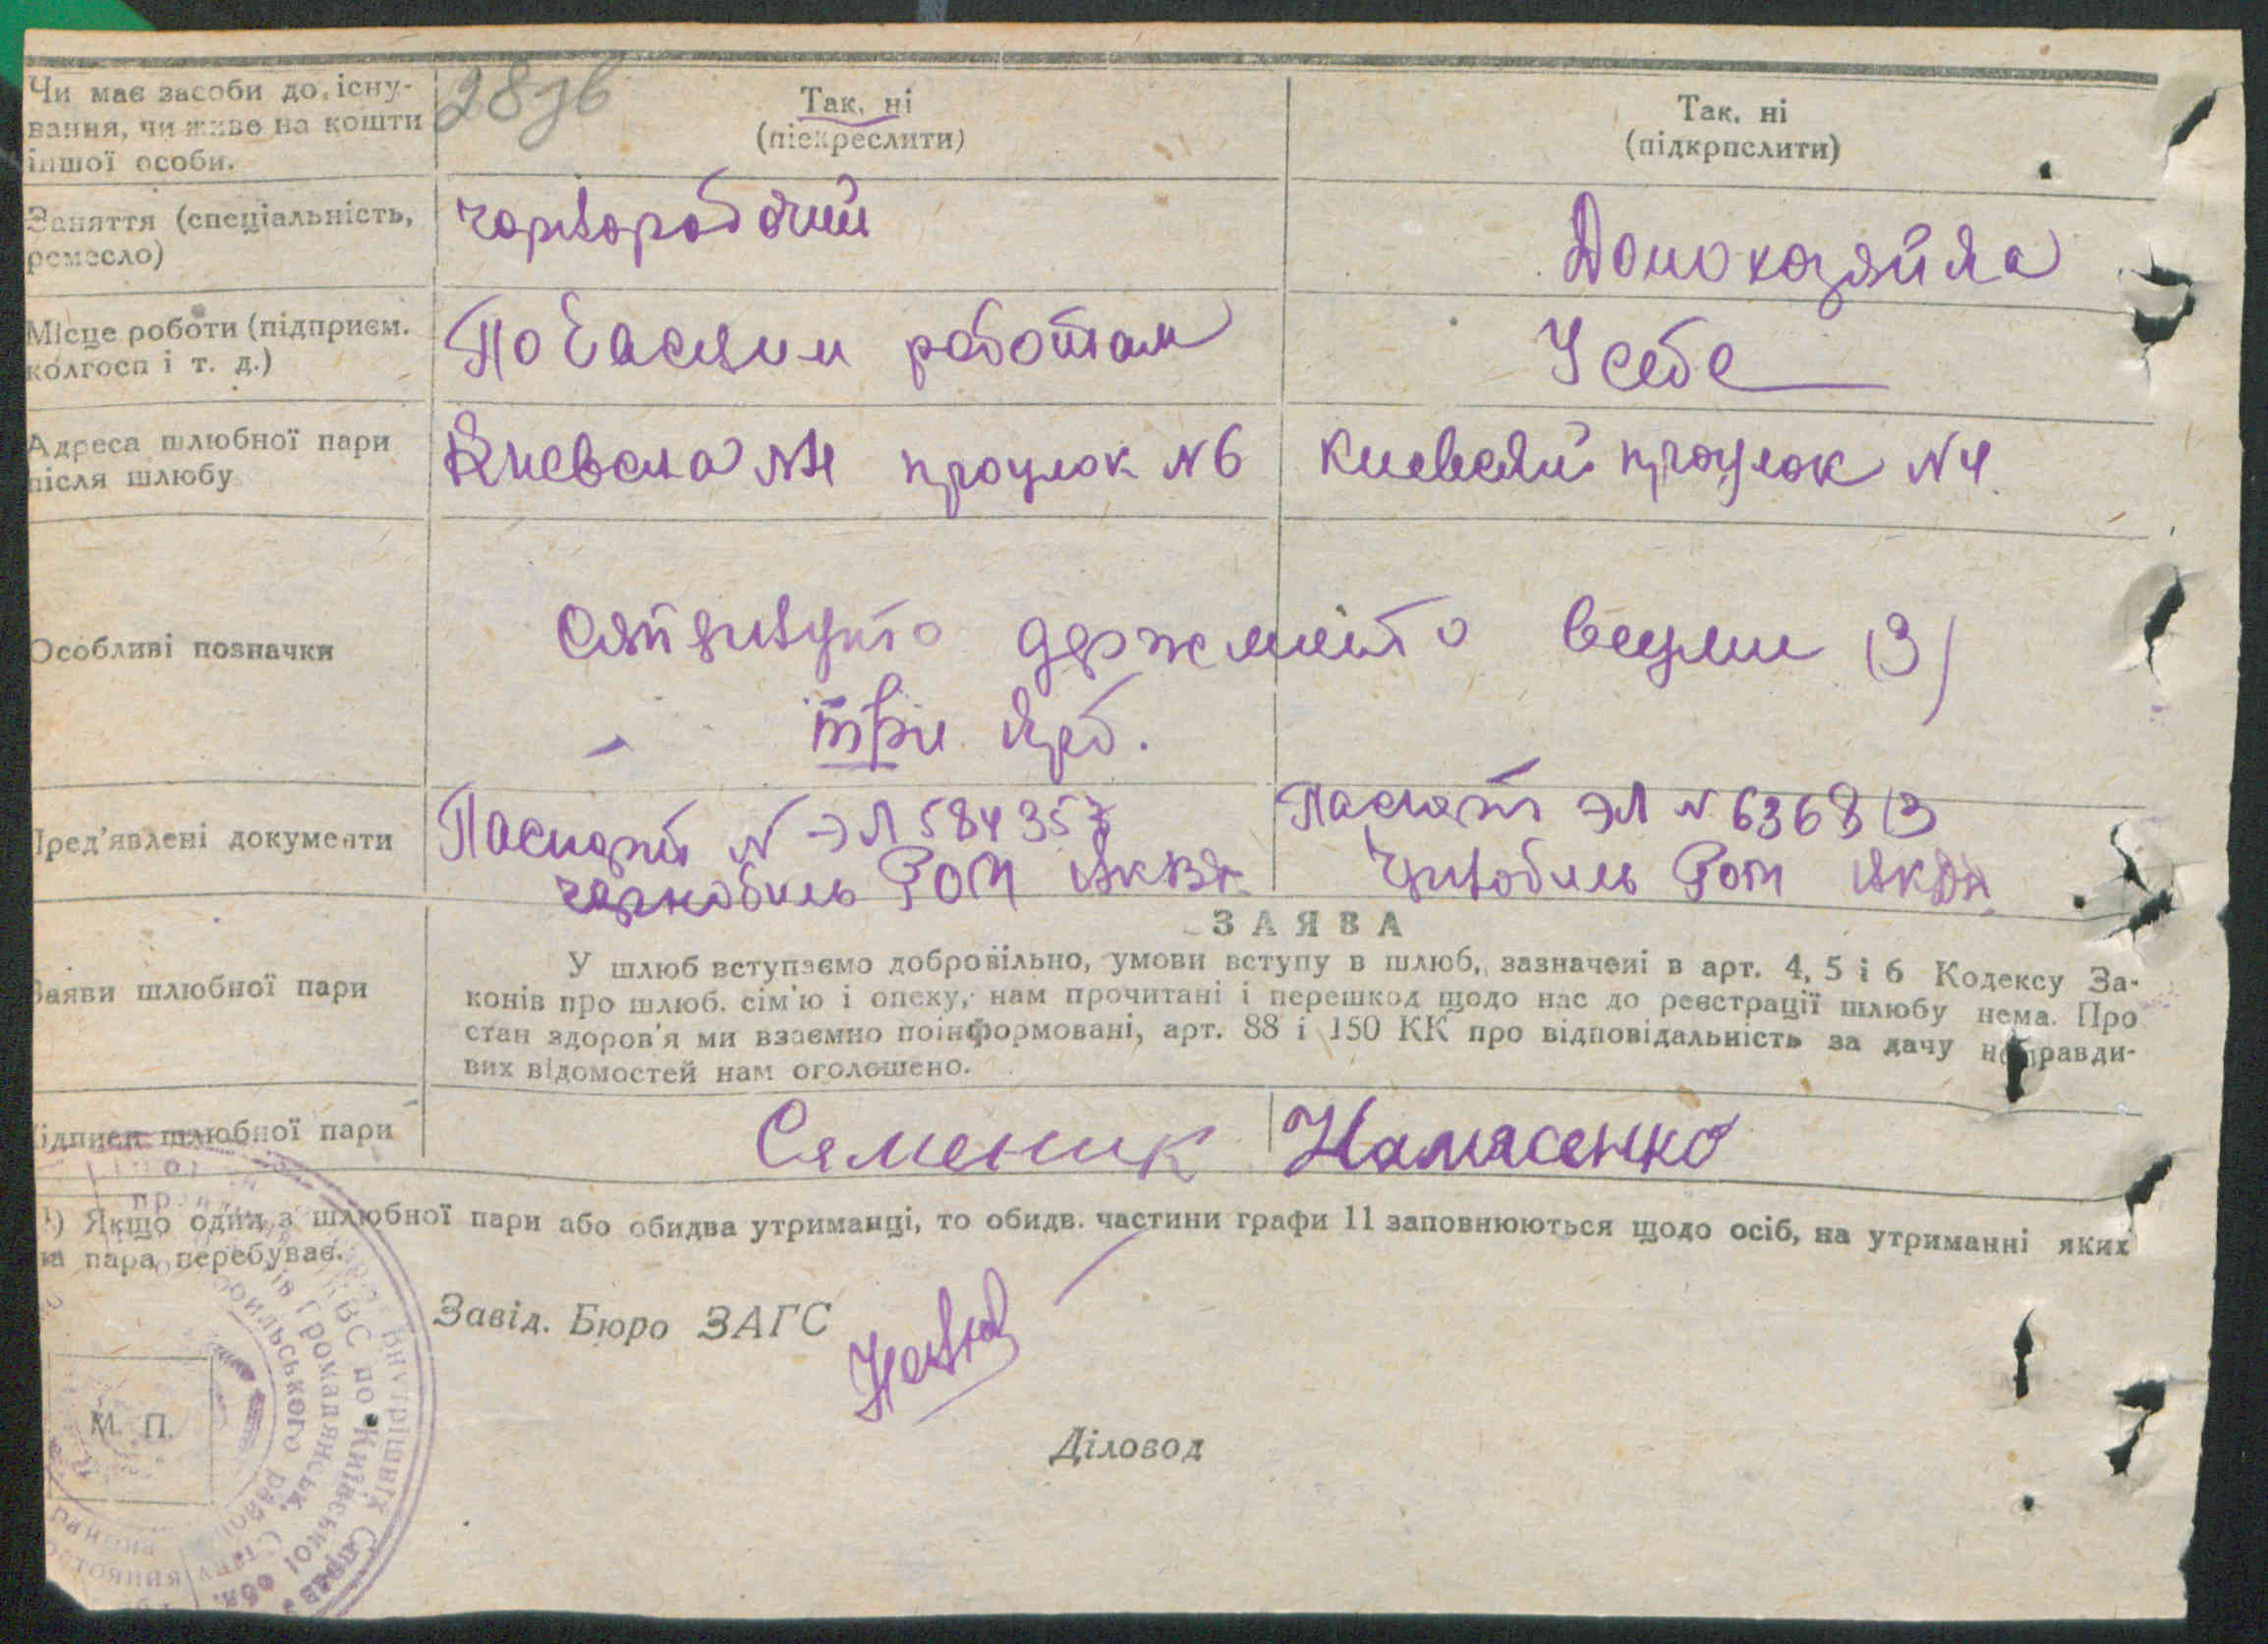 Чи має засоби до існу-
вання, чи живе на кошти
іншої особи.
28зв
Так, ні
(піекреслити)
Так, ні
(підкрпслити)
Заняття (спеціальність,
ремесло)
чорноробочий
Домохазяйка
Місце роботи (підприєм.
колгосп і т. д.)
По часним роботам
У себе
Адреса шлюбної пари
після шлюбу
Киевска №4 проулок №6
Киевский проулок №4
Особливі позначки
(3)
три крб.
Пред'явлені документи
Паспорт № ЭЛ 584357
чернобиль РОМ НКВД
Паспорт ЭЛ № 636813
Чорнобиль РОМ НКВД
ЗАЯВА
Заяви шлюбної пари
У шлюб вступаємо добровільно, умови вступу в шлюб, зазначені в арт. 4, 5 і 6 Кодексу За-
конів про шлюб. сім'ю і опеку, нам прочитані і перешкод щодо нас до реєстрації шлюбу нема. Про
стан здоров'я ми взаємно поінформовані, арт. 88 і 150 КК про відповідальність за дачу неправди-
вих відомостей нам оголошено.
Підписи шлюбної пари
Семеник
1) Якщо один з шлюбної пари або обидва утриманці, то обидв. частини графи 11 заповнюються щодо осіб, на утриманні яких
ця пара перебуває.
Завід. Бюро ЗАГС
М. П.
Діловод